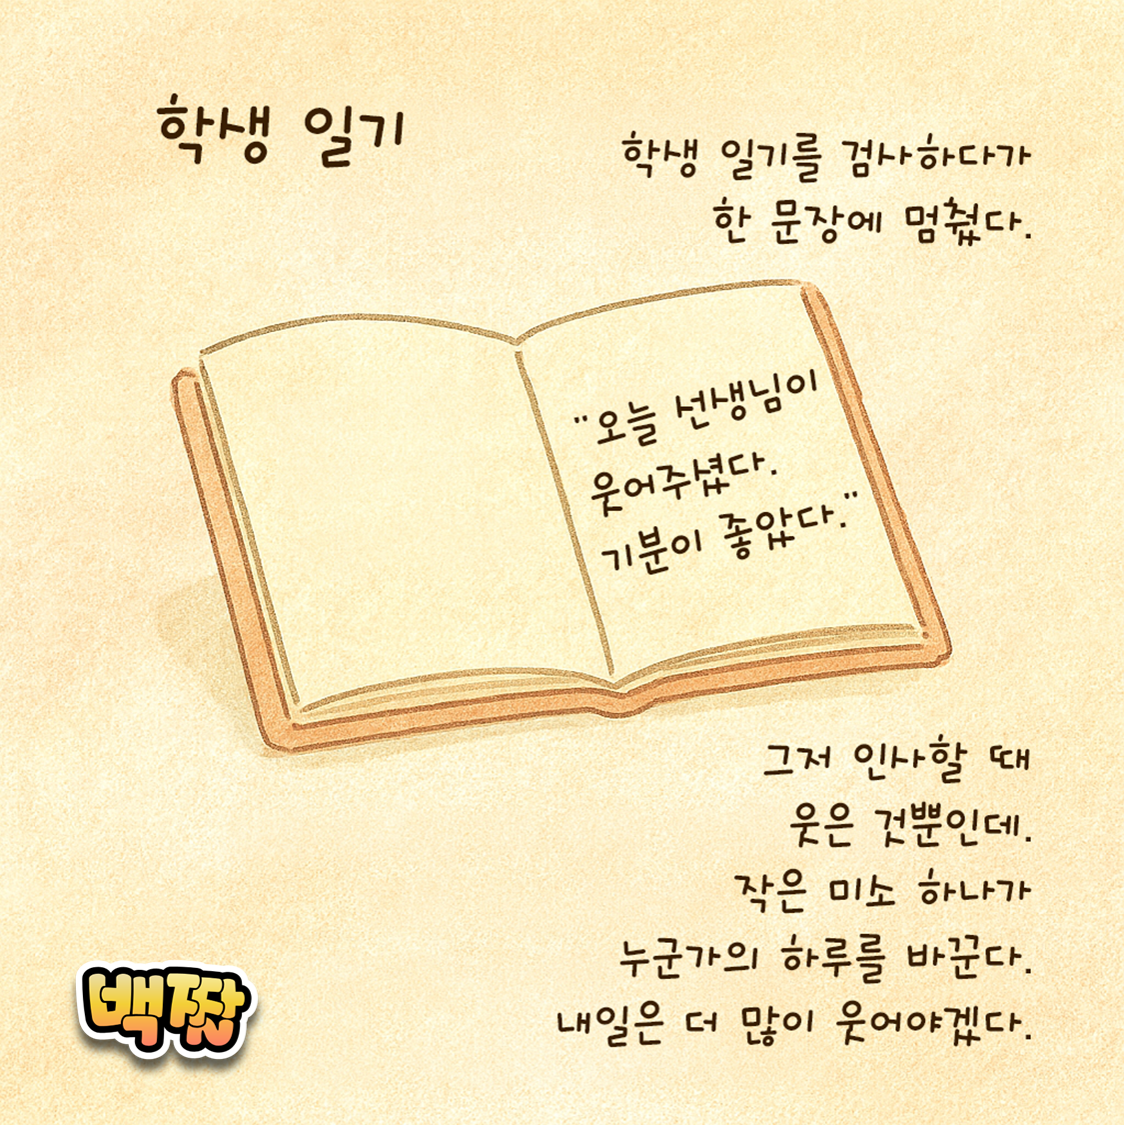 학생 일기
학생 일기를 검사하다가
한 문장에 멈췄다.
"오늘 선생님이
웃어주셨다.
기분이 좋았다."
그저 인사할 때
웃은 것뿐인데.
작은 미소 하나가
누군가의 하루를 바꾼다.
내일은 더 많이 웃어야겠다.
백짱